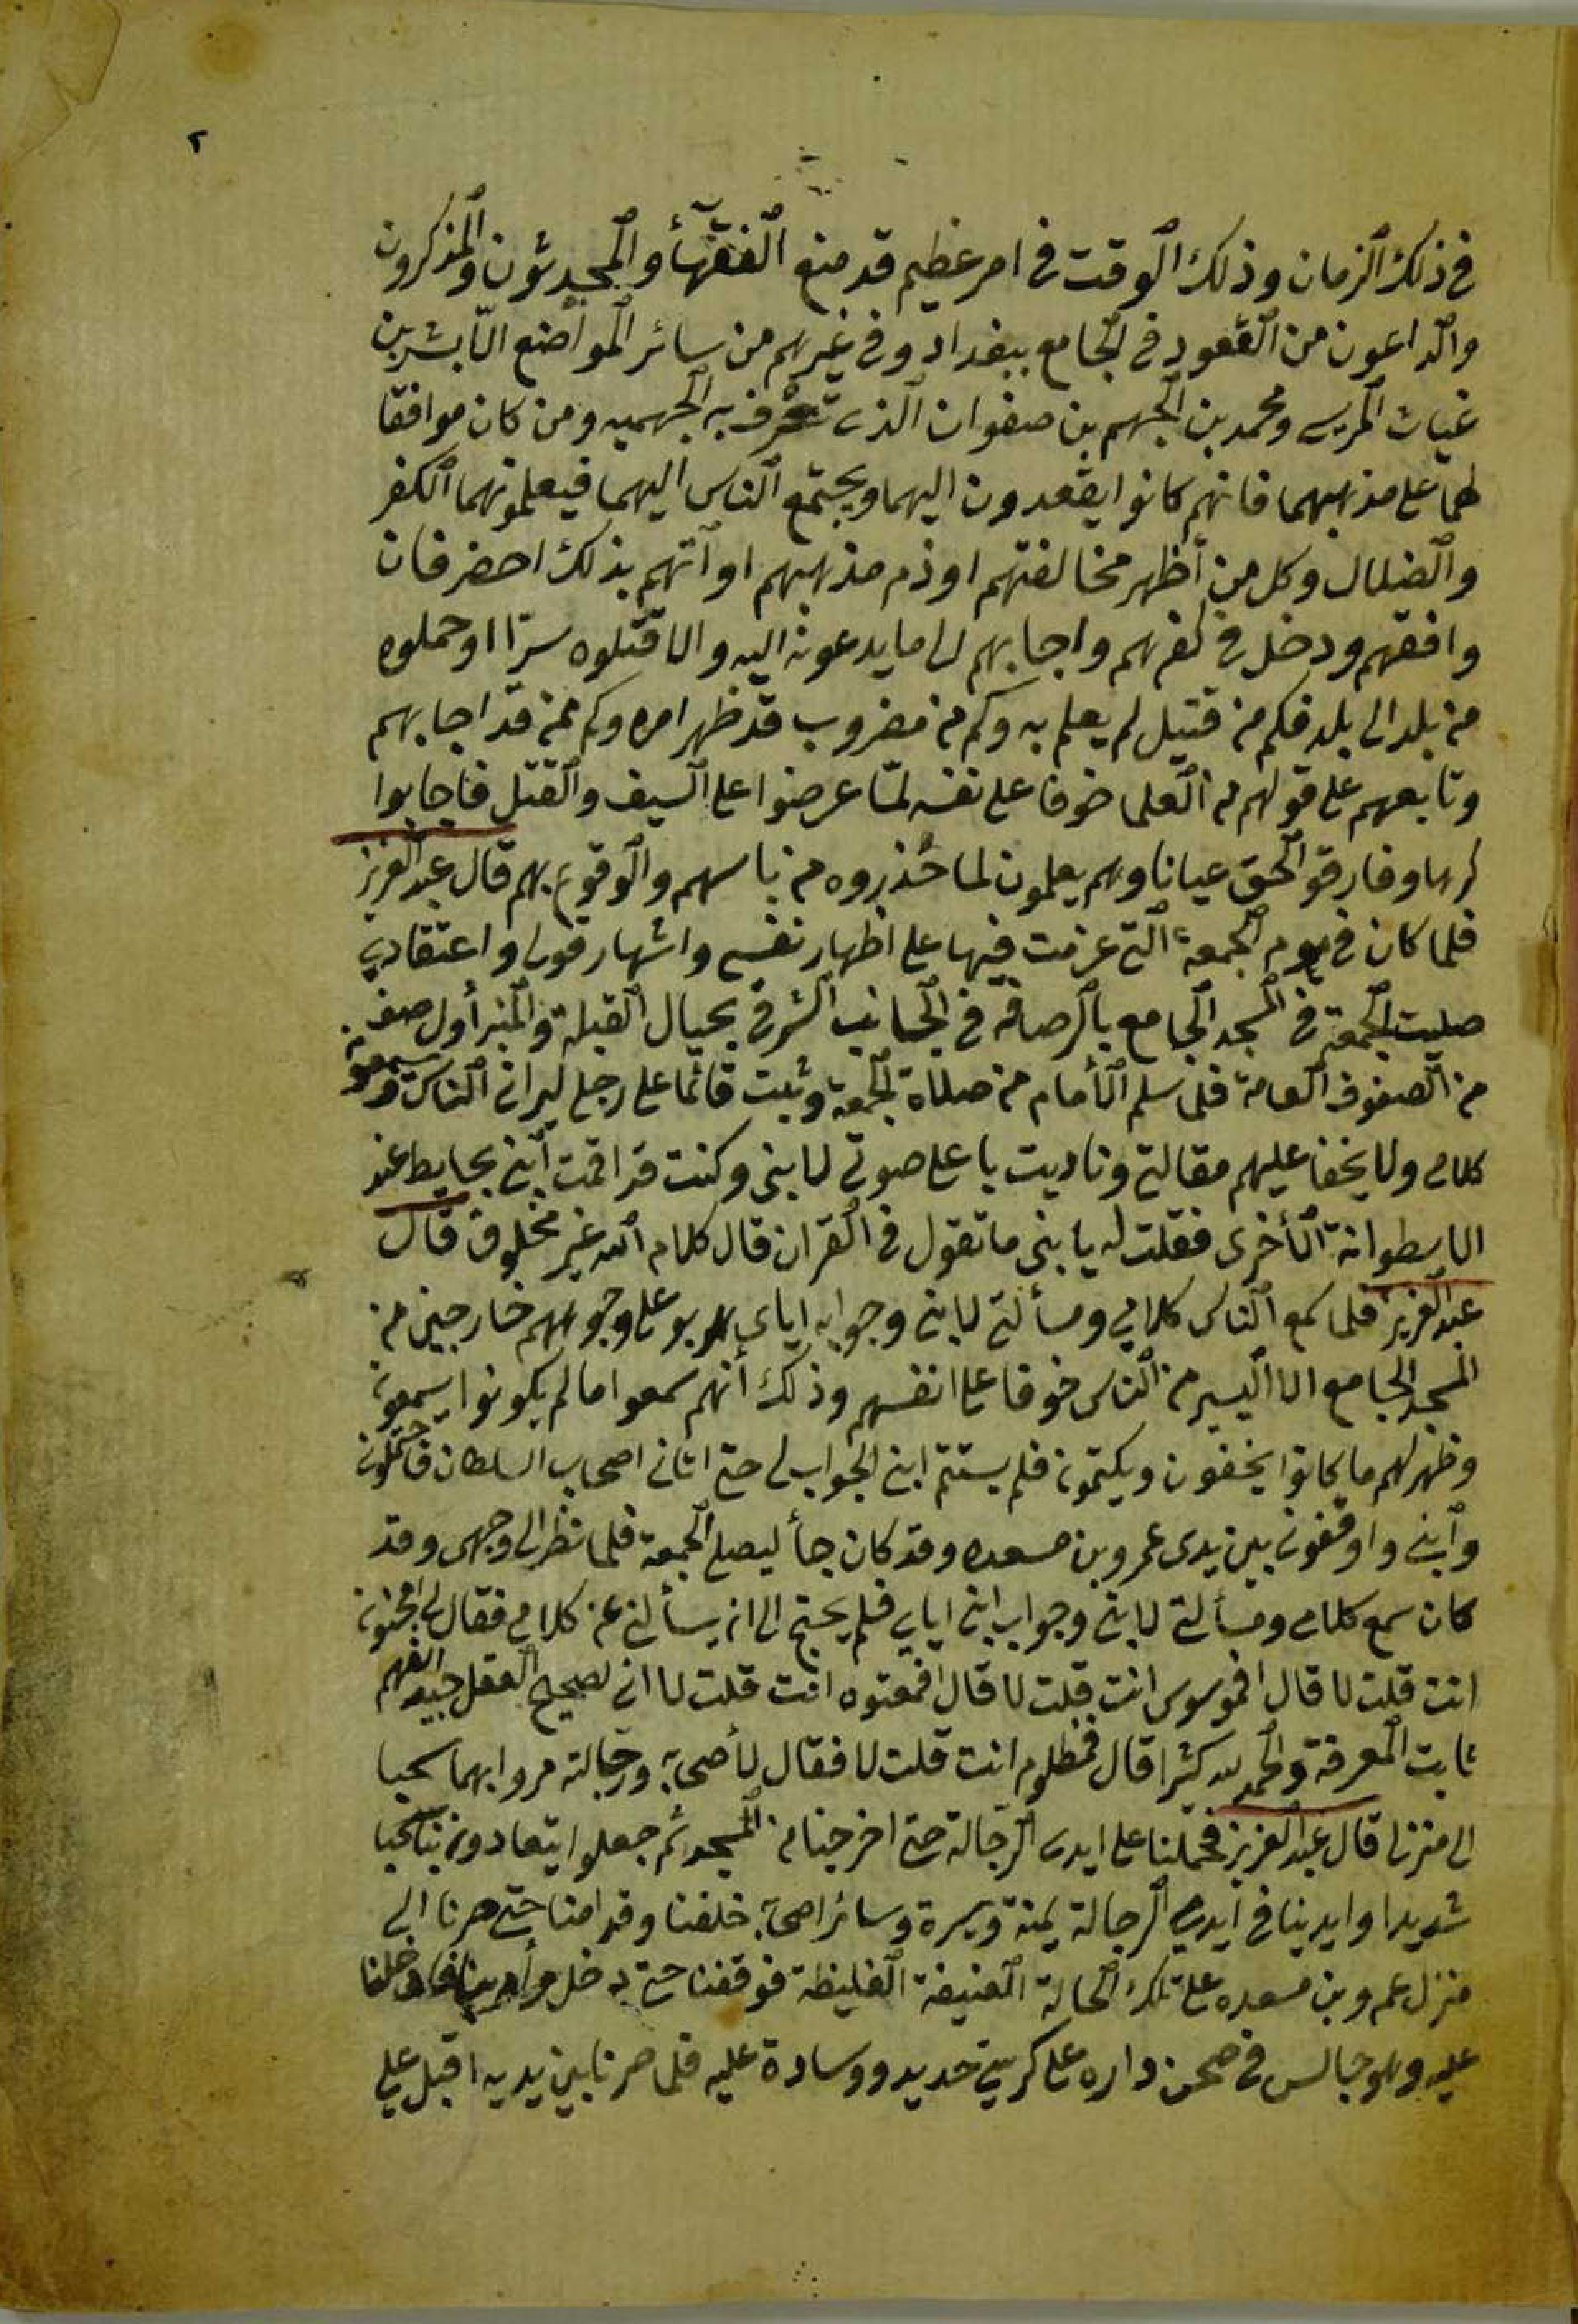 ٢
في ذلك الزمان وذلك الوقت في امر عظيم قد منع الفقهاء والمحدثون والمذكرون
والداعون من القعود في الجامع ببغداد وفي غيرهم من سائر المواضع الا بشر بن
غياث المريسي ومحمد بن الجهم بن صفوان الذي تعرف به الجهميه ومن كان موافقا
لهما على مذهبهما فانهم كانوا يقعدون اليهما ويجتمع الناس اليهما فيعلمونهما الكفر
والضلال وكل من أظهر مخالفتهم او ذم مذهبهم او اتهم بذلك احضر فان
وافقهم ودخل في كفرهم واجابهم الى ما يدعونه اليه والا قتلوه سرّا او حملوه
من بلد الى بلد فكم من قتيل لم يعلم به وكم من مضروب قد ظهر امره وكم ممن قد اجابهم
وتابعهم على قولهم من العلما خوفا على نفسه لمّا عرضوا على السيف والقتل فاجابوا
كرها وفارقو الحق عيانا وهم يعلمون لما حُذروه من باسهم والوقوع بهم قال عبد العزيز
فلما كان في يوم الجمعة التي عزمت فيها على اظهار نفسي واشهار قولي واعتقادي
صليت الجمعة في المسجد الجامع بالرصافة في الجانب الشرقي بحيال القبلة والمنبر أول صف
من الصفوف العامة فلما سلم الأمام من صلاة الجمعة وثبت قائما على رجلي ليراني الناس ويسمعوا
كلامي ولا يخفا عليهم مقالتي وناديت باعلى صوتي لابني وكنت قد اقمت ابني بحايط عند
الاسطوانة الأخرى فقلت له يا بني ما تقول في القران قال كلام الله غير مخلوق قال
عبد العزيز فلما سمع الناس كلامي ومسألتي لابني وجوابه اياي هربو على وجوههم خارجين من
المسجد الجامع الا اليسير من الناس خوفا على انفسهم وذلك أنهم سمعوا ما لم يكونوا يسمعونه
وظهر لهم ما كانوا يخفون ويكتمونه فلم يستتم ابني الجواب لي حتى اتاني اصحاب السلطان فاحتملوني
وابني واوقفوني بين يدى عمرو بن مسعده وقد كان جأ ليصلي الجمعة فلما نظر الى وجهى وقد
كان سمع كلامي ومسألتي لابني وجواب ابني اياي فلم يحتج الى ان يسألني عن كلامي فقال لي امجنون
انت قلت لا قال افموسوس انت قلت لا قال افمعتوه انت قلت لا اني لصحيح العقل جيد الفهم
ثابت المعرفة والحمد لله كثيرا قال فمظلوم انت قلت لا فقال لأصحابه ورجالته مروا بهما سحبا
الى منزلي قال عبد العزيز فحملنا على ايدى الرجالة حتى اخرجنا من المسجد ثم جعلوا يتعادون بنا سحبا
شديدا وايدينا في ايدي الرجالة يمنة ويسرة وسائر اصحابه خلفنا وقدامنا حتى صرنا الى
منزل عمرو بن مسعده على تلك الحالة العنيفة الغليظة فوقفنا حتى دخل وأمر بنا فادخلنا
عليه وهو جالس في صحن داره على كرسي حديد ووسادة عليه فلما صرنا بين يديه اقبل علي